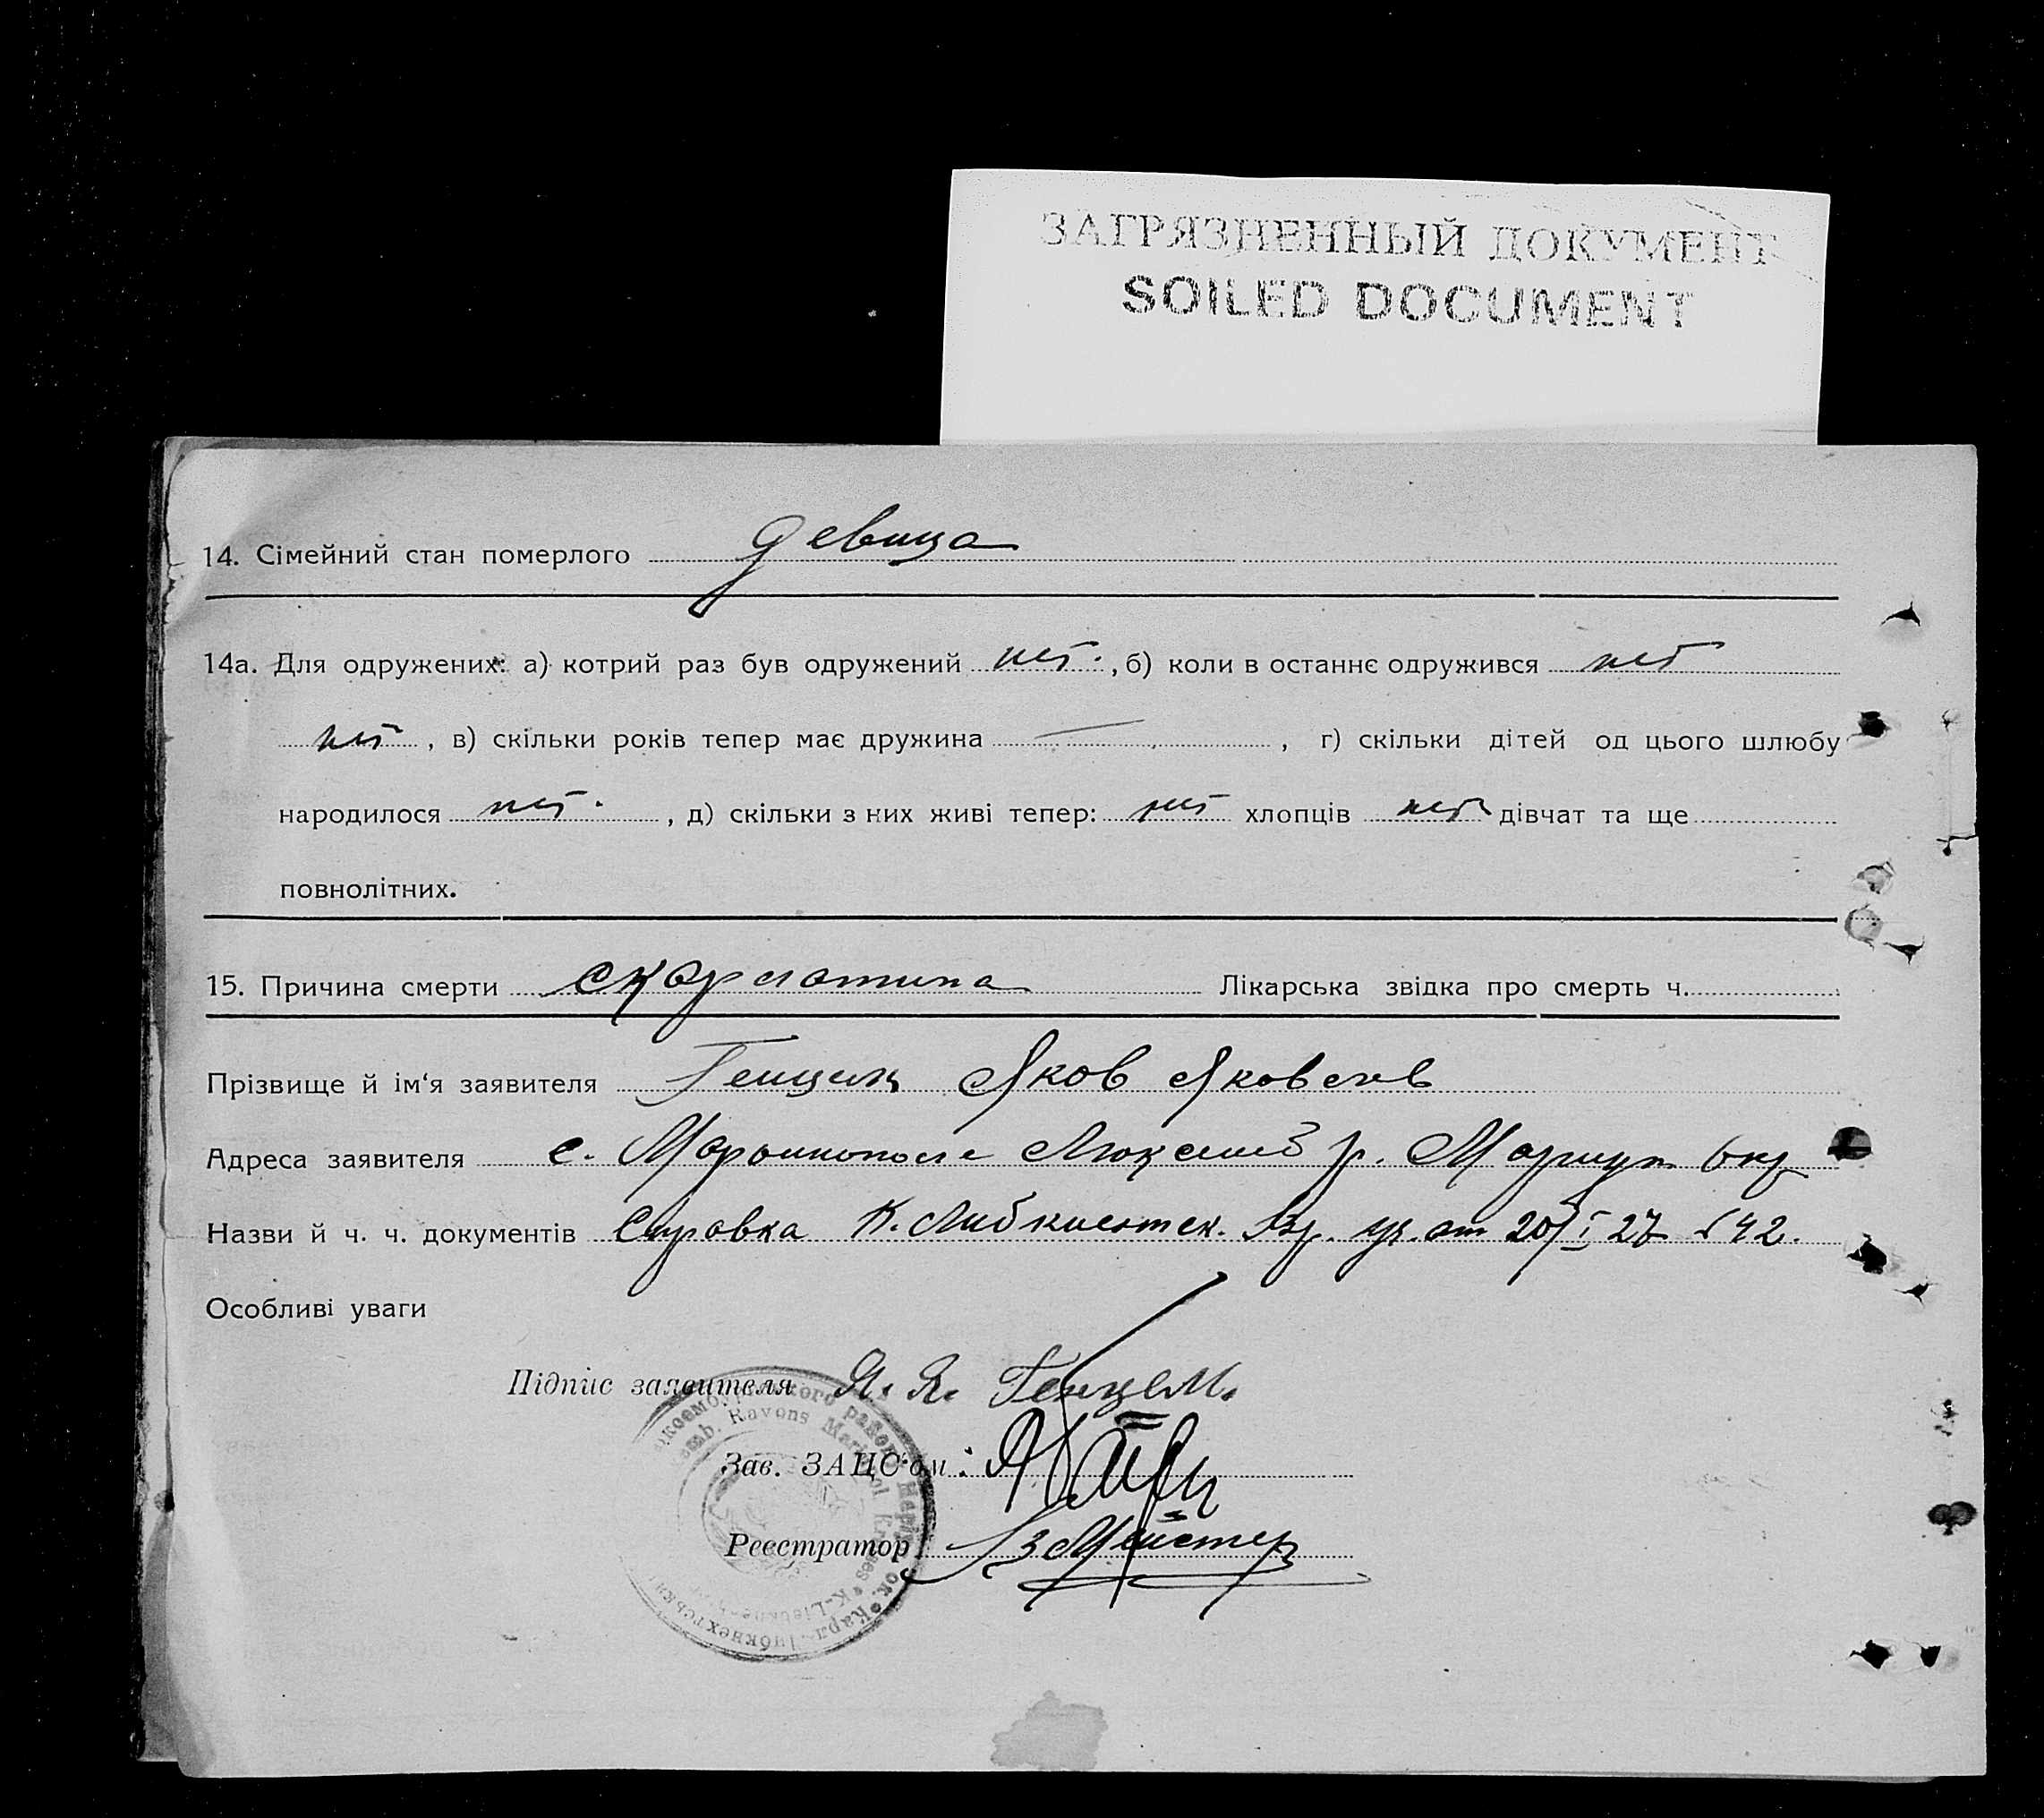 ЗАГРЯЗНЕННЫЙ ДОКУМЕНТ
SOILED DOCUMENT
14. Сімейний стан померлого девица
14а. Для одружених: а) котрий раз був одружений нет. , б) коли в останнє одружився нет
нет , в) скільки років тепер має дружина — , г) скільки дітей од цього шлюбу
народилося нет. , д) скільки з них живі тепер: нет хлопців нет дівчат та ще
повнолітних.
15. Причина смерти скарлатина Лікарська звідка про смерть ч.
Прізвище й ім'я заявителя Генцель Яков Яковлев
Адреса заявителя с. Марьинополе Люксемб р. Мариуп Окр
Назви й ч. ч. документів Справка К. Либкнехтск. от 20/I 27 № 42.
Особливі уваги
Підпис заявителя Я. Я. Генцель.
Зав. ЗАЦС'ом :
Реєстратор Мейстер